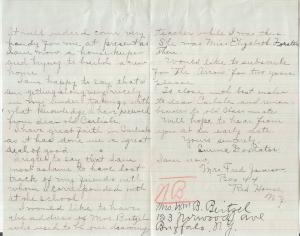 It will indeed come very
handy for me, at present as
am now a house-keeper
and trying to build a new
house.
I am happy to say that I
am getting along very nicely
in my undertakings with
what knowledge I have received
from dear old Carlisle.
I have great faith in Carlisle
as it has done me a great
deal of good.
I regret to say that I am
most ashamed to have lost
track of my friends with
whom I corresponded with
at the school.
I would like to have
the address of Mrs. Beitzel
who used to be our sewing
teacher while I was there
She was Miss Elizabeth Forster
then.
Would like to subscribe
for The Arrow for two years
please.
To close with best wishes
to dear Carlisle and
Will hope to hear from
you at an early date.
Yours sincerely,
Emma
I am now,
Mrs Fred
Box 44
Red House,
N.Y.
NB
Mrs. Wm B. Beitzel
123 Norwood Ave
Buffalo, N.Y.